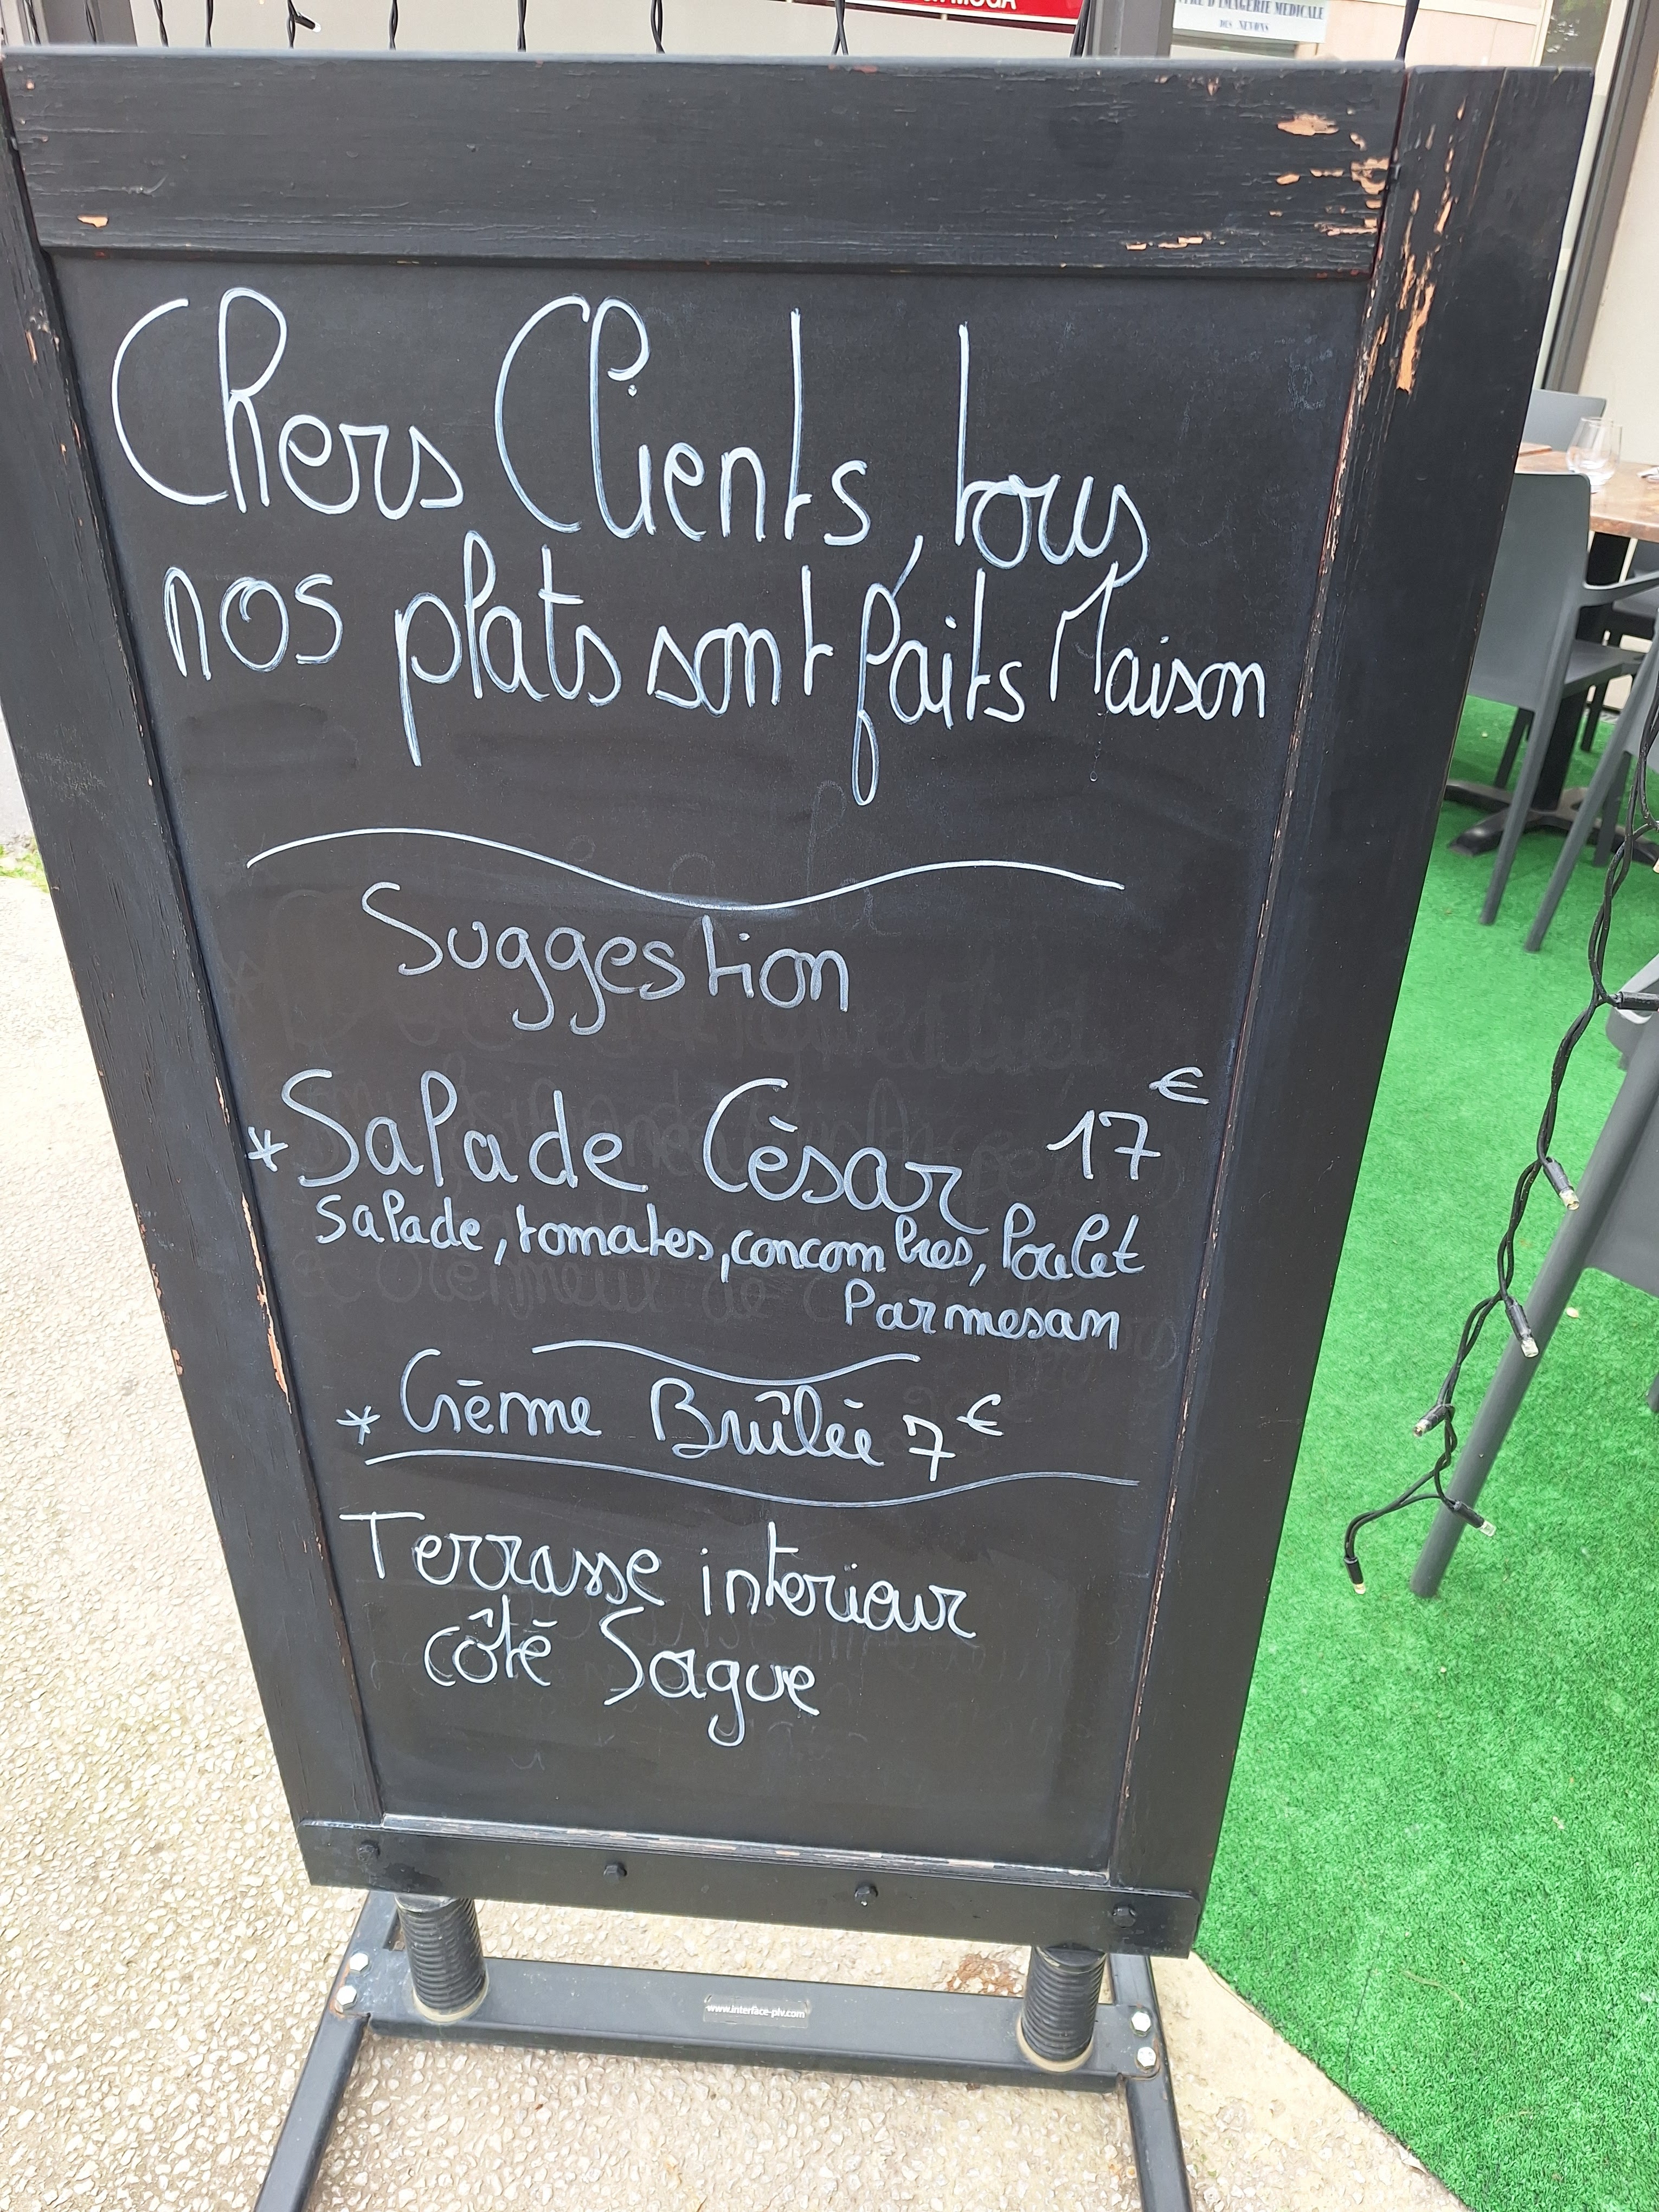 CENTRE D'IMAGERIE MEDICALE
DES NEVONS
Chers Clients, tous
nos plats sont faits Maison
Suggestion
* Salade César 17€
Salade, tomates, concombres, Poulet
Parmesan
* Crème Brûlée 7€
Terrasse interieur
côté Sogue
www.interface-plv.com